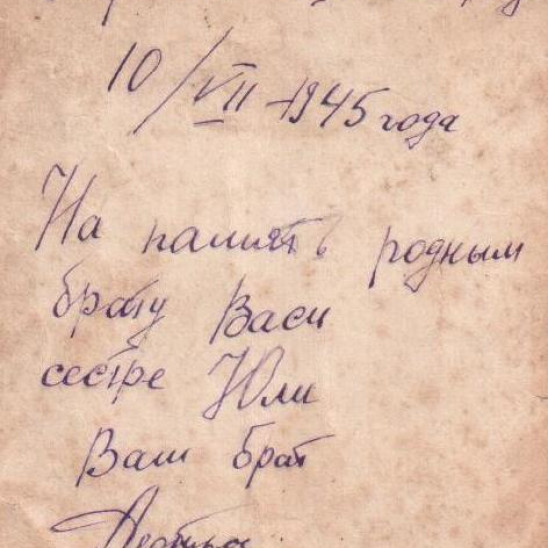 10/VII-1945 года
На память родным
брату Васи
сестре Юли
Ваш брат